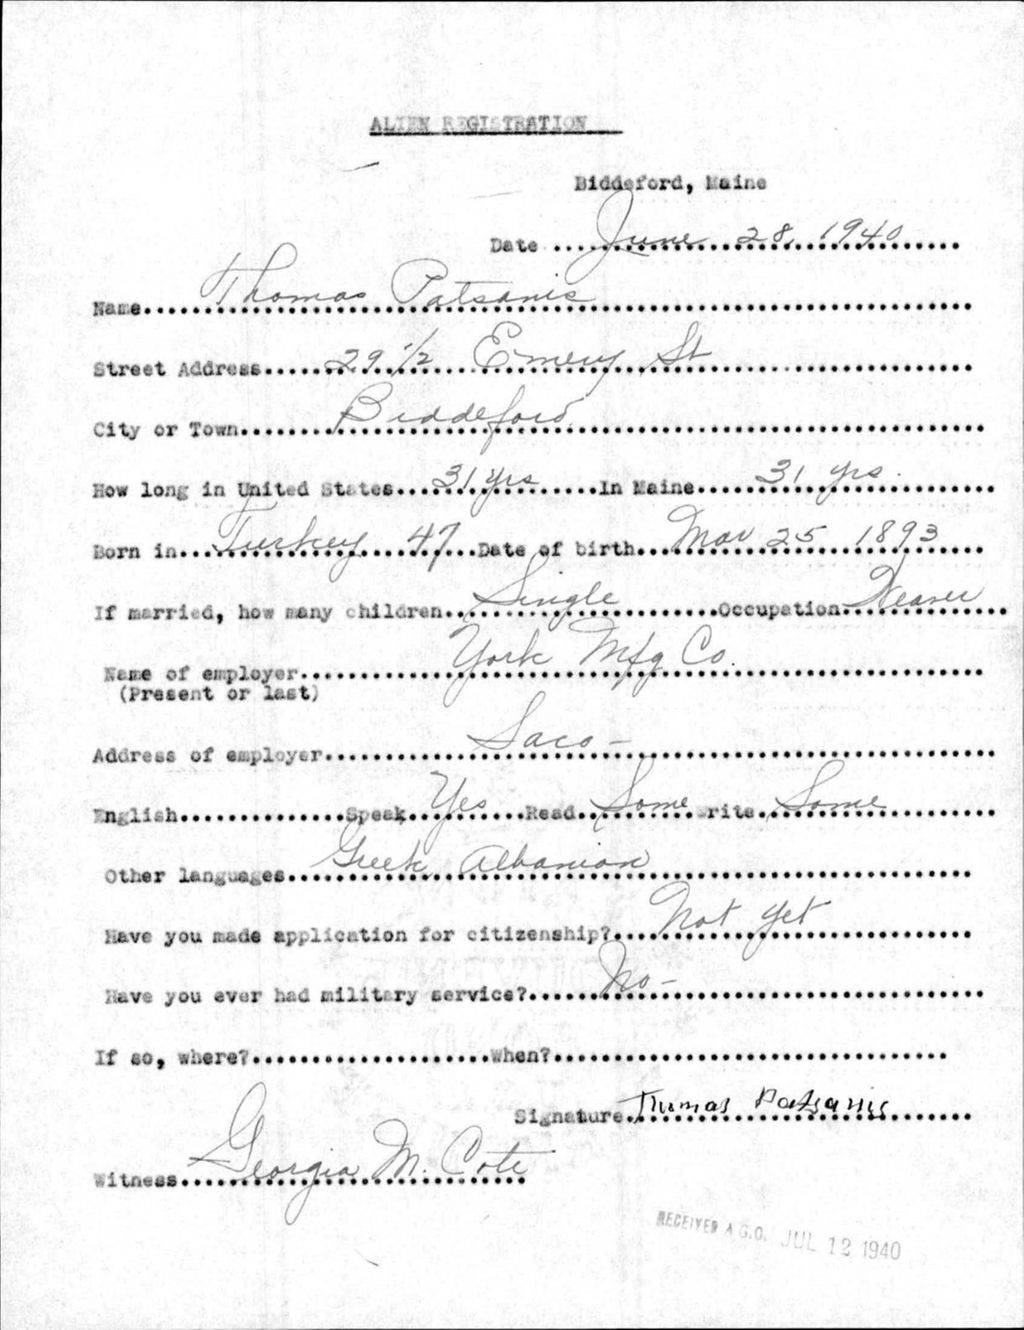 ALIEN REGISTRATION
Biddeford, Maine
Date ....June 28, 1940
Name....Thomas Patsanis
Street Address....29 1/2 Emery St
City or Town....Biddeford
How long in United States....31 yrs....In Maine....31 yrs.
Born in....Turkey 47....Date of birth....Mar 25 1893
If married, how many children....Single....Occupation....Weaver
Name of employer....York Mfg Co.
(Present or last)
Address of employer....Saco-
English....Speak....Yes....Read....Some....Write....Some
Other languages....Greek Albanian
Have you made application for citizenship?....Not yet
Have you ever had military service?....No-
If so, where?....When?....
Signature....Thomas Patsanis
Witness....Georgia M. Cote
RECEIVED A.G.O. JUL 12 1940